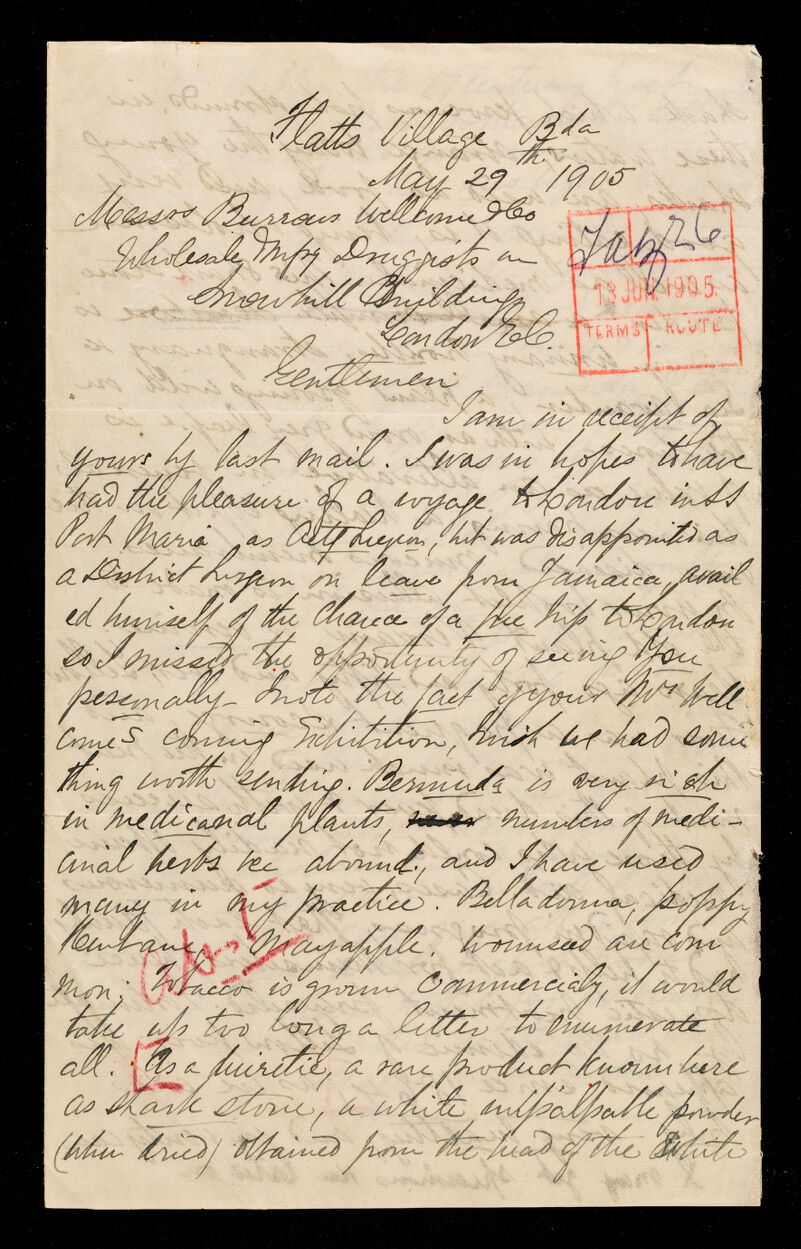 Flatts Village Bda
May 29th 1905
Messrs Burrows Wellcome & Co
Wholesale Mfg Druggists
Snowhill Buildings
London E.C.
13 JUN. 1905.
TERMS ROUTE
Gentlemen
I am in receipt of
yours by last mail. I was in hopes to have
had the pleasure of a voyage to London in SS
Port Maria as Actg Surgeon, but was disappointed as
a District Surgeon on leave from Jamaica, avail
ed himself of the chance of a free trip to London
so I missed the opportunity of seeing you
personally - I note the fact of your Mr Well
comes coming Exhibition, I wish we had some
thing worth sending. Bermuda is very rich
in medicanal plants, numbers of medi-
cinal herbs &c abound, and I have used
many in my practice. Belladonna, poppy
Henbane, Mayapple, wormseed are com
mon; Tobacco is grown commercialy, it would
take up too long a letter to enumerate
all. As a diuretic, a rare product known here
as shark stone, a white impalpable powder
(when dried) obtained from the head of the White